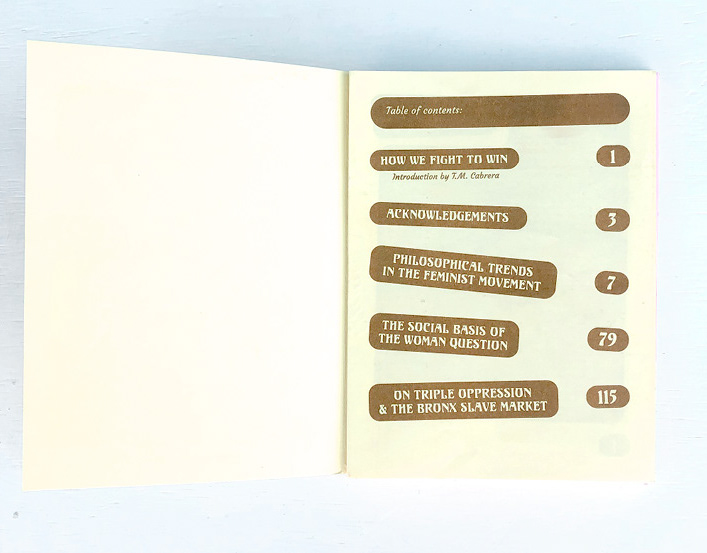 Table of contents:
HOW WE FIGHT TO WIN
1
Introduction by T.M. Cabrera
ACKNOWLEDGEMENTS
3
PHILOSOPHICAL TRENDS
IN THE FEMINIST MOVEMENT
7
THE SOCIAL BASIS OF
THE WOMAN QUESTION
79
ON TRIPLE OPPRESSION
& THE BRONX SLAVE MARKET
115